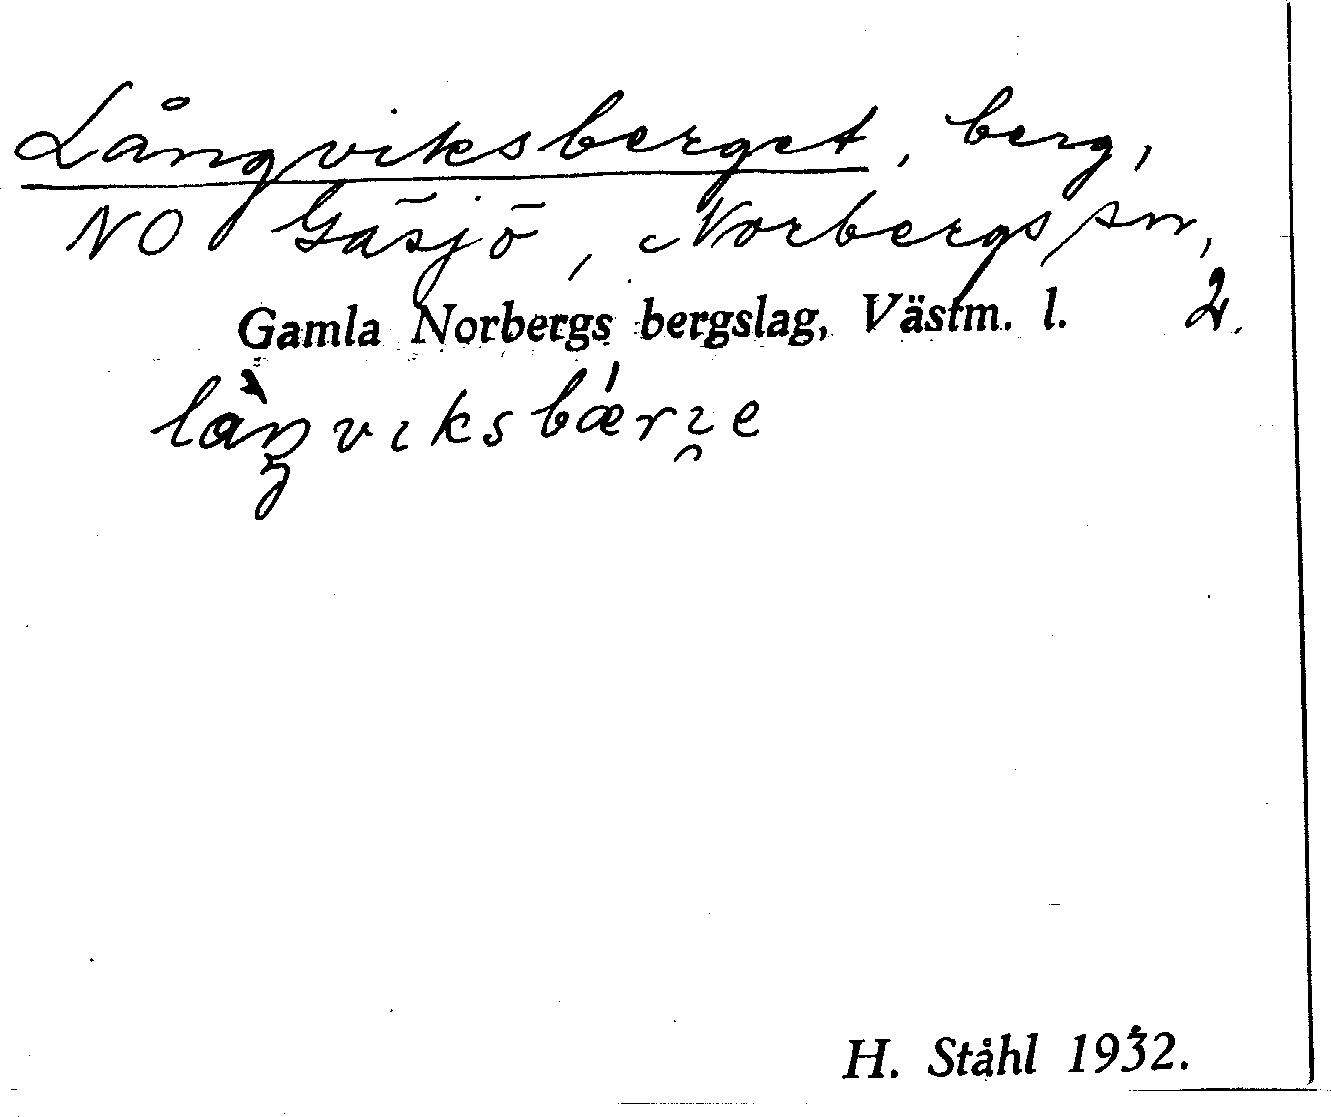 Långviksberget, berg,
NO Gäsjö, Norbergs sn,
Gamla Norbergs bergslag, Västm. l. 2.
låŋviksbærɩ̯e
H. Ståhl 1932.